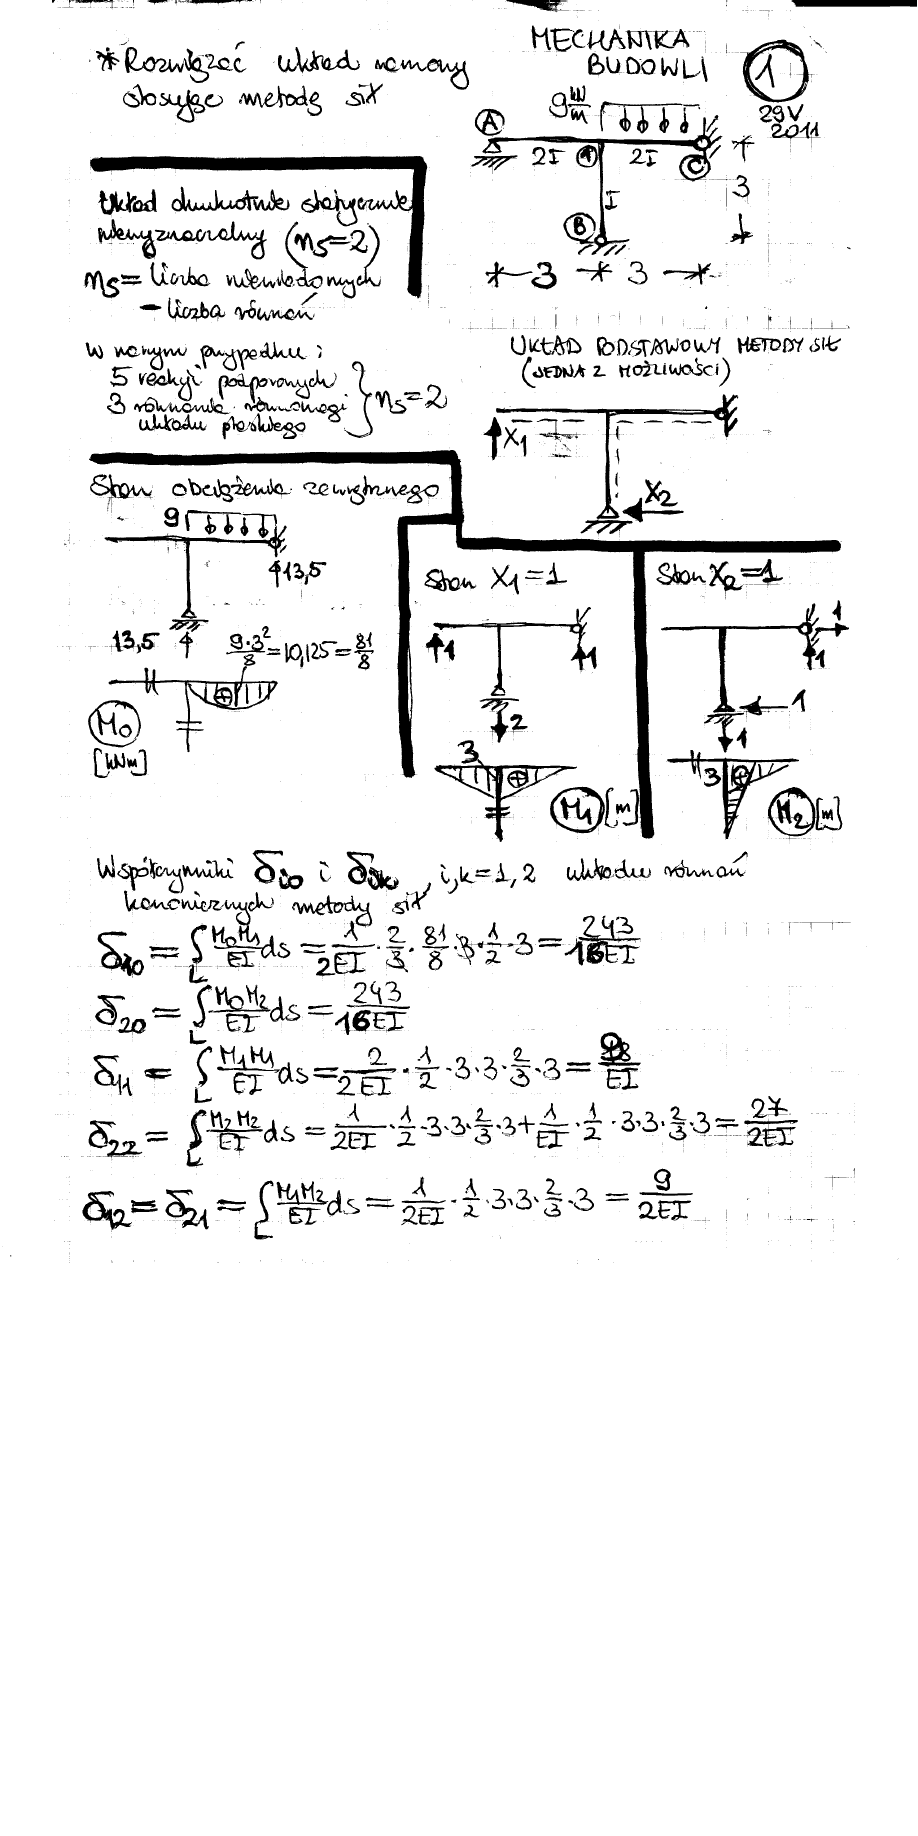 MECHANIKA
BUDOWLI
1
29 V
2011
* Rozwiązać układ ramowy
stosując metodę sił
9 kN/m
A
2I
1
2I
C
I
B
3
3
3
Układ dwukrotnie statycznie
niewyznaczalny (nS=2)
nS = liczba niewiadomych
– liczba równań
W naszym przypadku:
5 reakcji podporowych
3 równania równowagi
układu płaskiego
nS=2
UKŁAD PODSTAWOWY METODY SIŁ
(JEDNA Z MOŻLIWOŚCI)
X1
X2
Stan obciążenia zewnętrznego
9
13,5
13,5
9·3²/8 = 10,125 = 81/8
M0
[kNm]
Stan X1=1
1
1
2
3
M1 [m]
Stan X2=1
1
1
1
1
3
M2 [m]
Współczynniki δi0 i δik, i,k=1,2 układu równań
kanonicznych metody sił
δ10 = ∫L M0M1/EI ds = 1/2EI · 2/3 · 81/8 · 3 · 1/2 · 3 = 243/16EI
δ20 = ∫L M0M2/EI ds = 243/16EI
δ11 = ∫L M1M1/EI ds = 2/2EI · 1/2 · 3·3 · 2/3 · 3 = 9/EI
δ22 = ∫L M2M2/EI ds = 1/2EI · 1/2 · 3·3 · 2/3 · 3 + 1/EI · 1/2 · 3·3 · 2/3 · 3 = 27/2EI
δ12 = δ21 = ∫L M1M2/EI ds = 1/2EI · 1/2 · 3·3 · 2/3 · 3 = 9/2EI